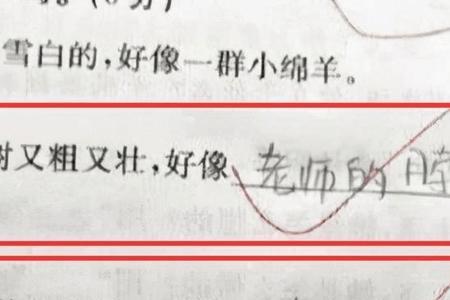 雪白的,好像一群小绵羊。
树又粗又壮,好像老师的